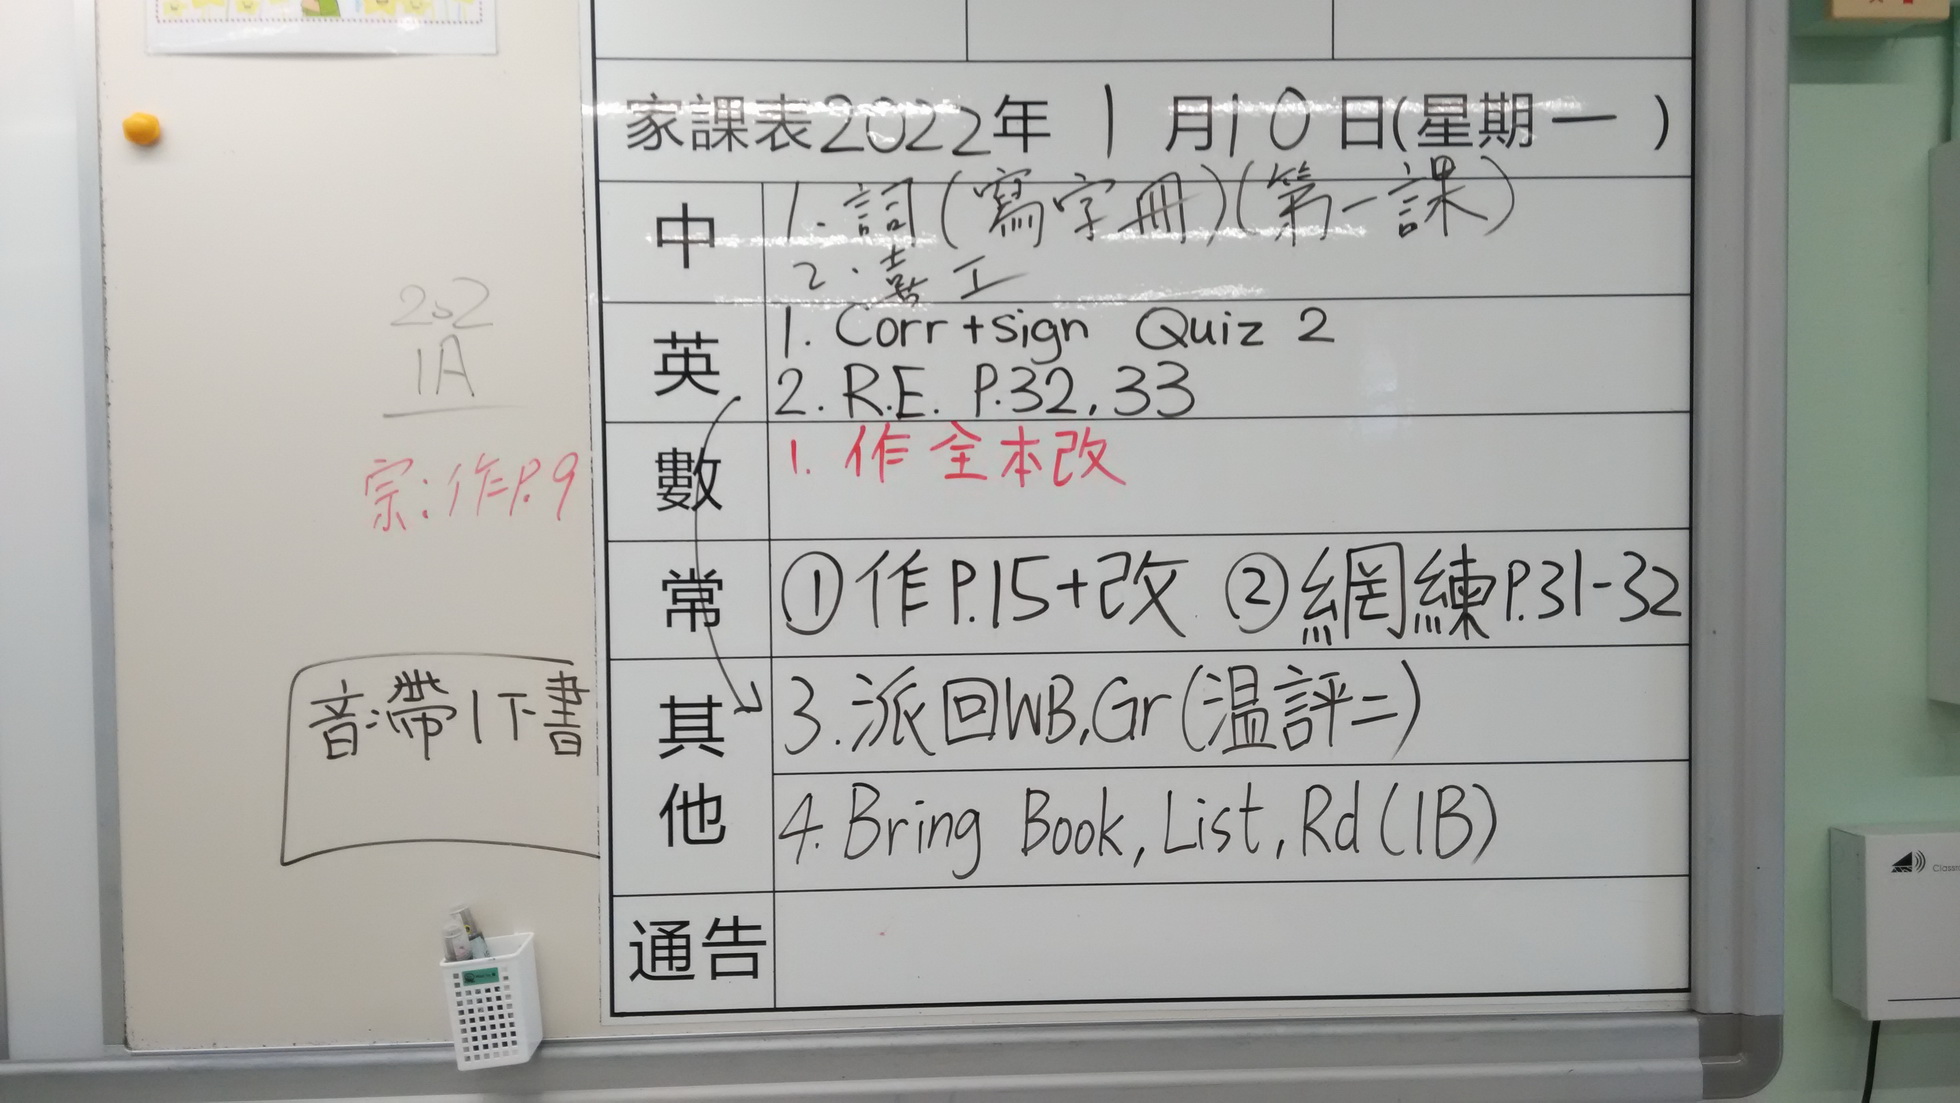 家課表2022年 1 月10日(星期一 )
中
1.詞(寫字冊)(第一課)
2.喜工
英
1. Corr+sign Quiz 2
2. R.E. P.32,33
數
1. 作全本改
常
①作P.15+改 ②網練P.31-32
其他
3.派回WB,Gr(温評二)
4.Bring Book, List, Rd(1B)
通告
202
1A
宗:作P.9
音:帶1下書